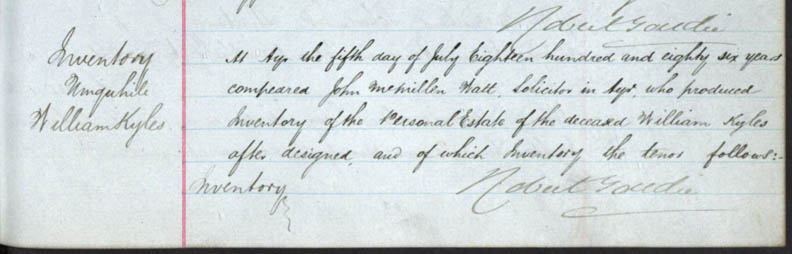 Robert Goudie
Inventory
Umquhile
William Kyles
At Ayr the fifth day of July Eighteen hundred and eighty six years
compeared John McMillen Watt, Solicitor in Ayr, who produced
Inventory of the Personal Estate of the deceased William Kyles
after designed, and of which Inventory the tenor follows:-
Inventory
Robert Goudie